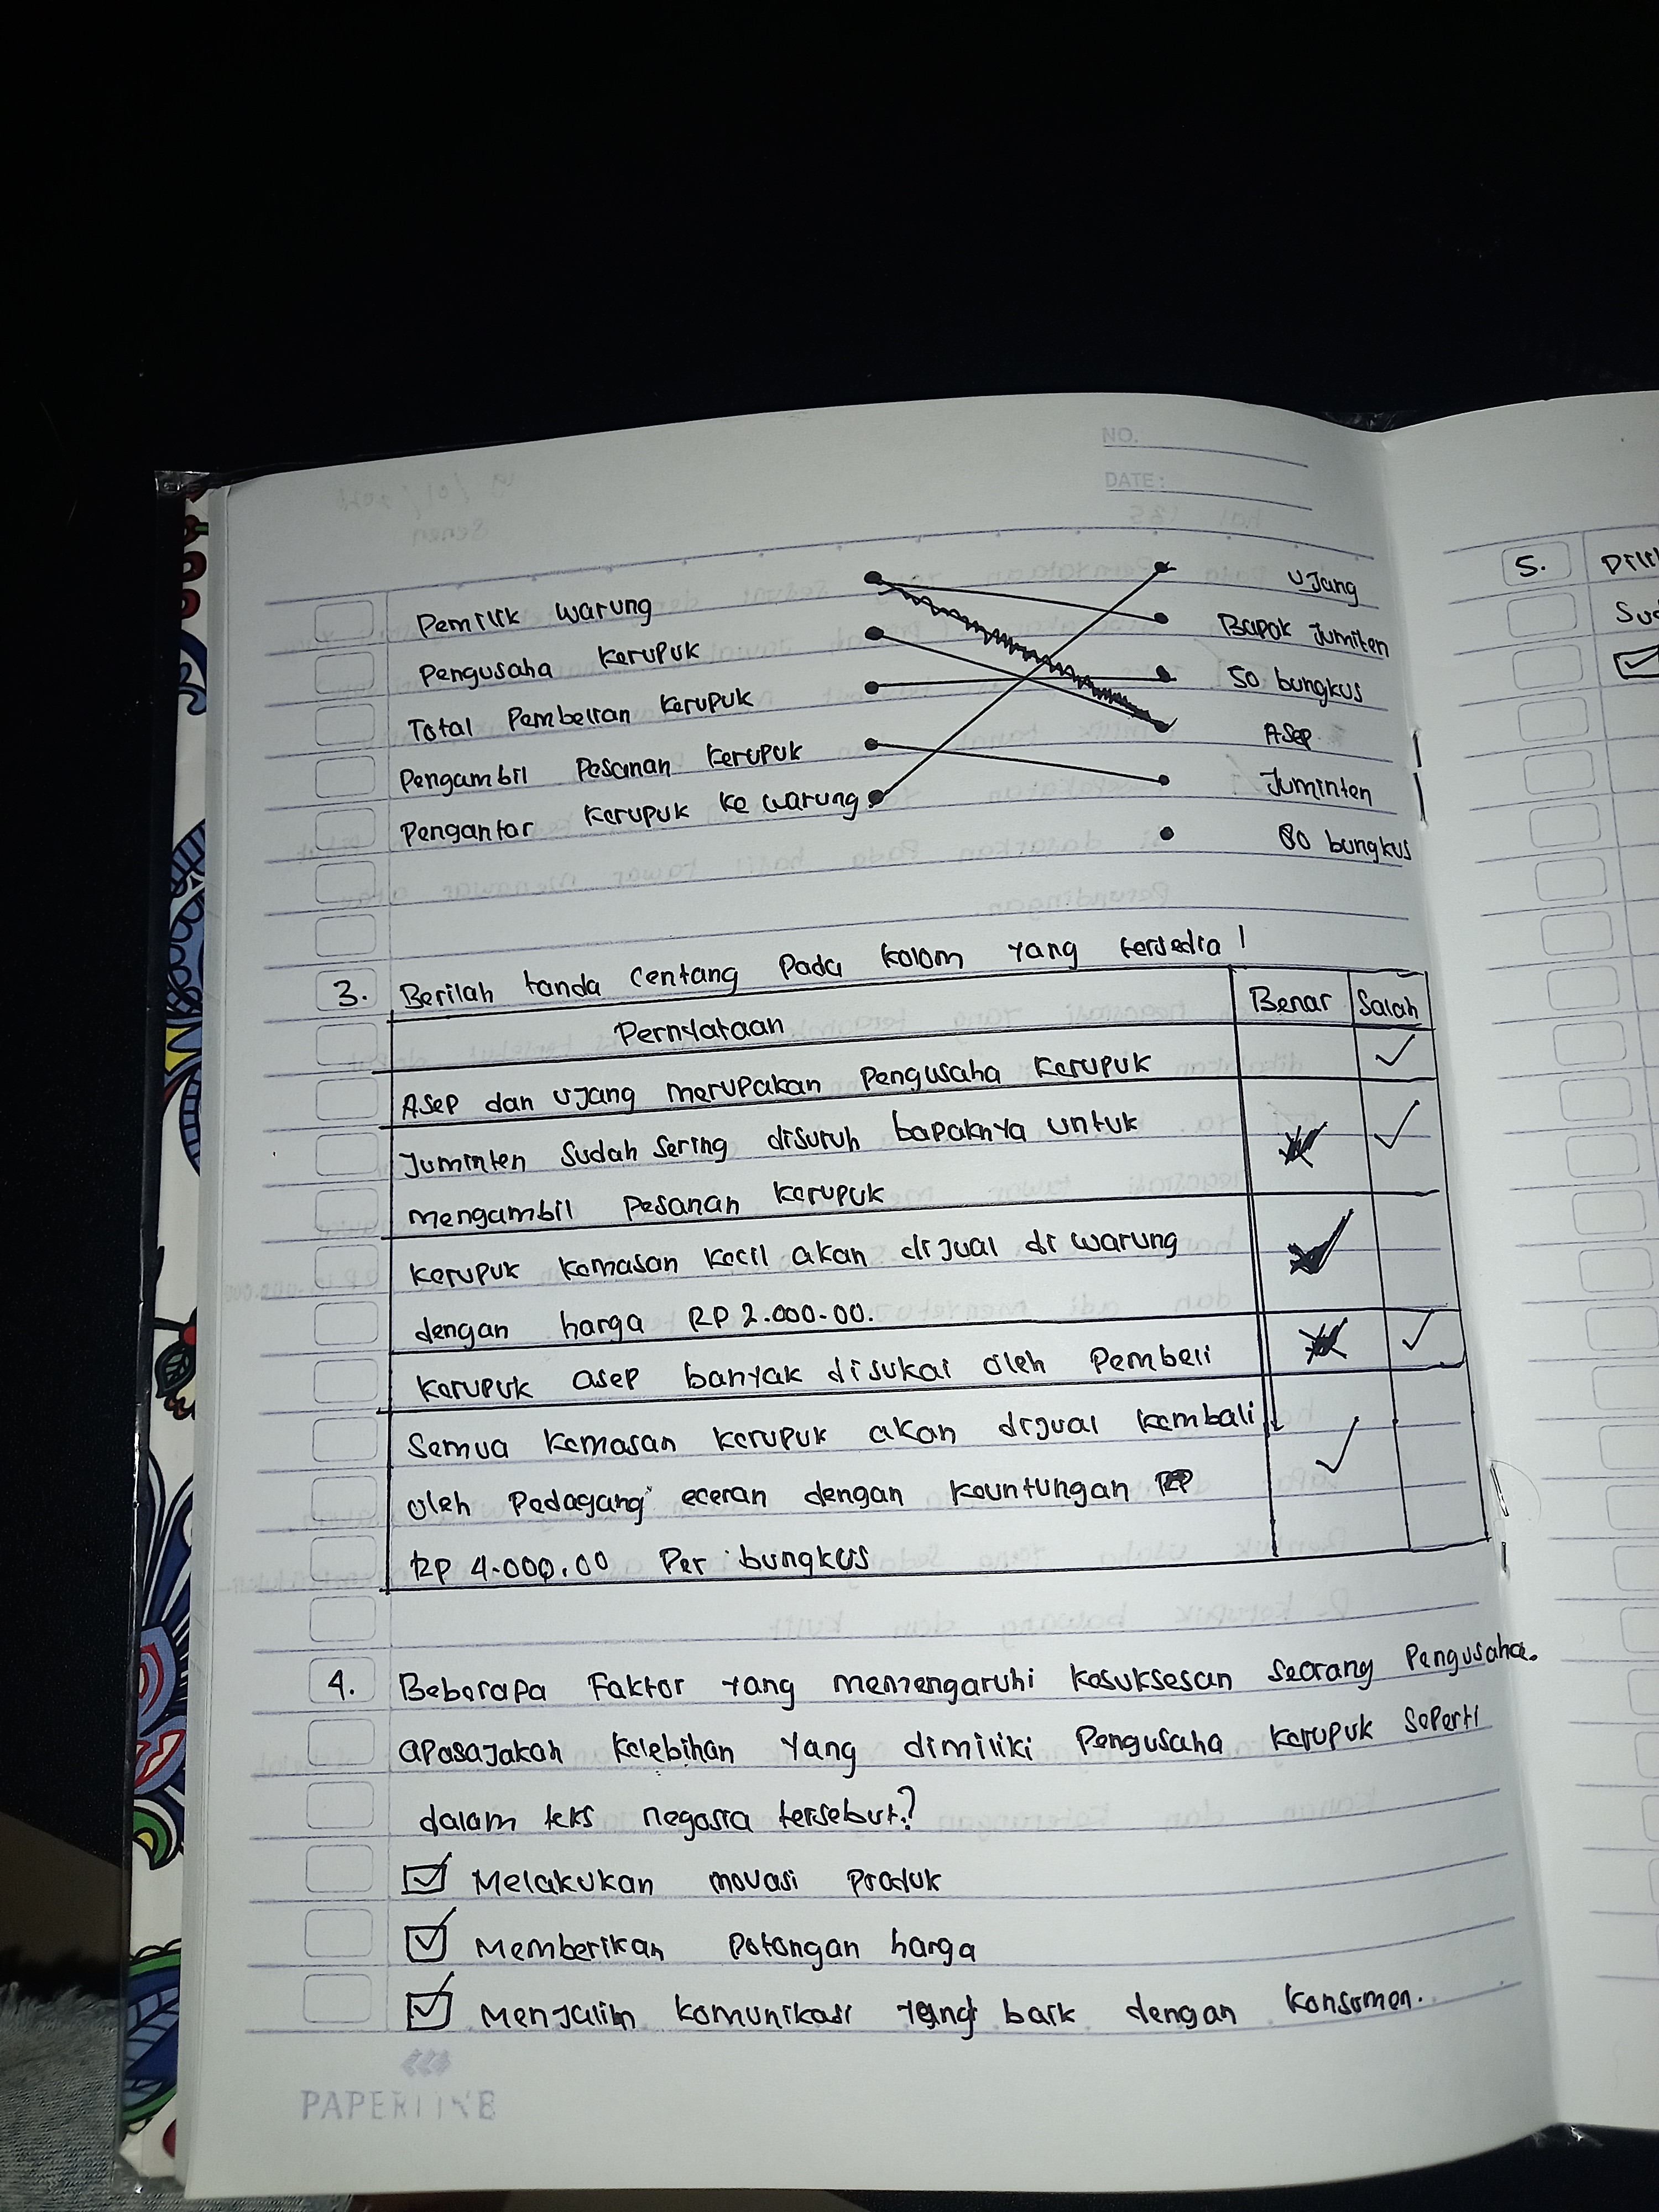 NO.
DATE:
Pemilik warung
Ujang
Pengusaha kerupuk
Bapak Jumiten
Total Pembelian kerupuk
50 bungkus
Pengambil Pesanan kerupuk
Asep
Pengantar kerupuk ke warung
Juminten
80 bungkus
3. Berilah tanda centang Pada kolom yang tersedia !
Pernyataan Benar Salah
Asep dan Ujang merupakan Pengusaha kerupuk ✓
Juminten Sudah Sering disuruh bapaknya untuk ✓
mengambil Pesanan kerupuk
kerupuk kemasan kecil akan dijual di warung ✓
dengan harga RP 2.000.00.
kerupuk asep banyak disukai oleh Pembeli ✓
Semua kemasan kerupuk akan dijual kembali ✓
oleh Pedagang eceran dengan keuntungan RP
RP 4.000.00 Per bungkus
4. Beberapa Faktor yang memengaruhi kesuksesan Seorang Pengusaha.
apasajakah kelebihan yang dimiliki Pengusaha kerupuk seperti
dalam teks negosia tersebut?
✓ Melakukan inovasi Produk
✓ Memberikan Potongan harga
✓ Menjalin komunikasi yang baik dengan konsumen.
PAPERLINE
5.